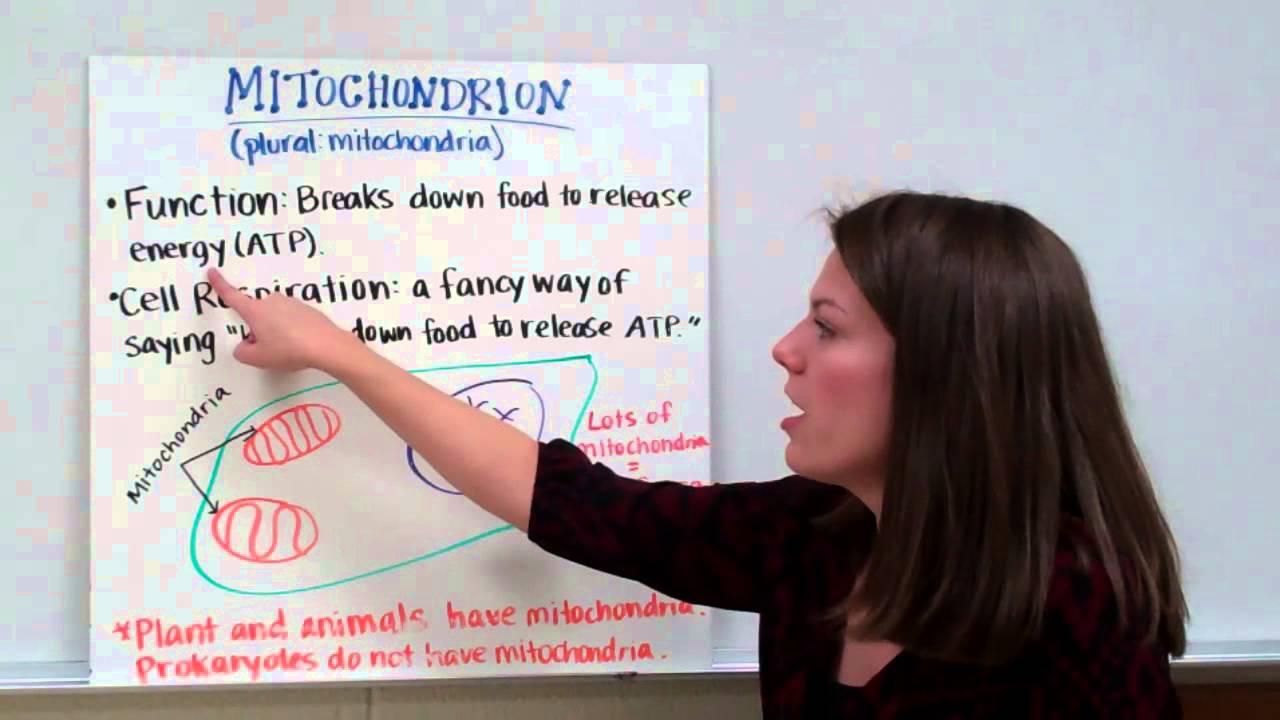 MITOCHONDRION
(plural: mitochondria)
• Function: Breaks down food to release
energy (ATP).
• Cell Respiration: a fancy way of
saying " down food to release ATP."
Mitochondria
Lots of
mitochondria
=
*Plant and animals have mitochondria.
Prokaryoles do not have mitochondria.